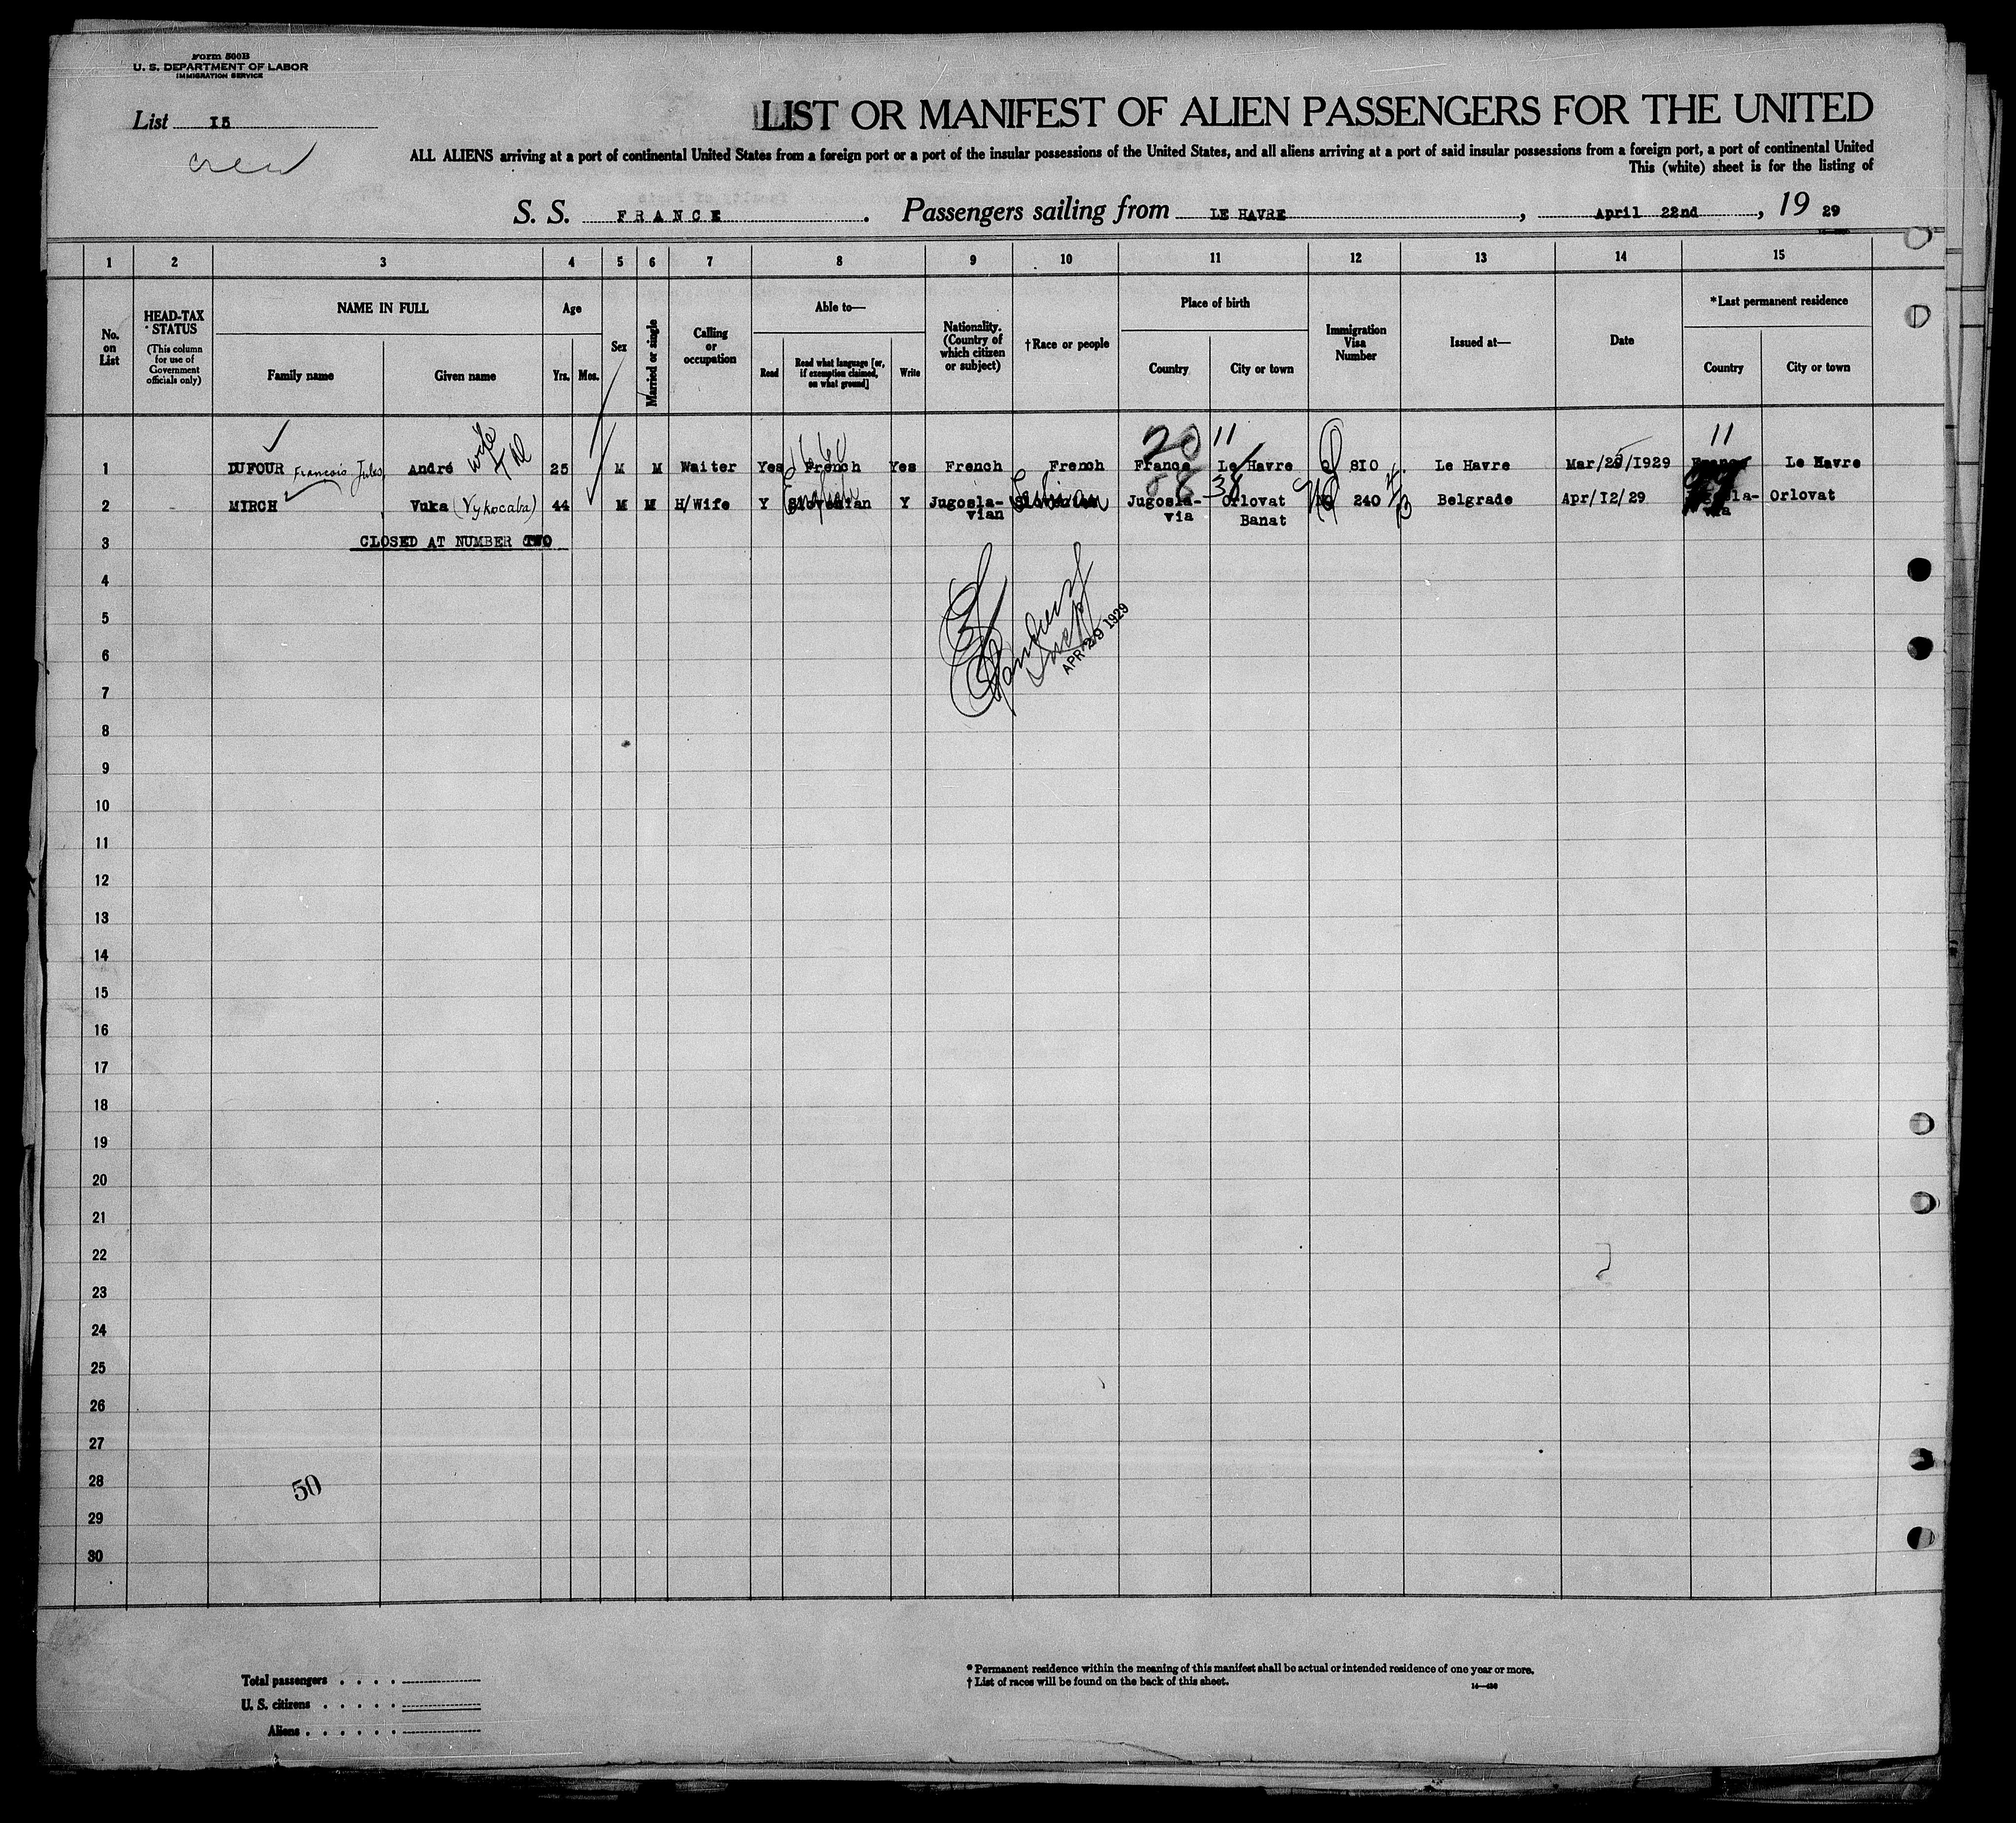 Form 500B
U. S. DEPARTMENT OF LABOR
IMMIGRATION SERVICE
List I5
crew
LIST OR MANIFEST OF ALIEN PASSENGERS FOR THE UNITED
ALL ALIENS arriving at a port of continental United States from a foreign port or a port of the insular possessions of the United States, and all aliens arriving at a port of said insular possessions from a foreign port, a port of continental United
This (white) sheet is for the listing of
S. S. FRANCE. Passengers sailing from LE HAVRE, April 22nd, 19 29
1 2 3 4 5 6 7 8 9 10 11 12 13 14 15
No. on List
HEAD-TAX STATUS
(This column for use of Government officials only)
NAME IN FULL
Family name
Given name
Age
Yrs.
Mos.
Sex
Married or single
Calling or occupation
Able to—
Read
Read what language [or, if exemption claimed, on what ground]
Write
Nationality. (Country of which citizen or subject)
†Race or people
Place of birth
Country
City or town
Immigration Visa Number
Issued at—
Date
*Last permanent residence
Country
City or town
20 11 11
1 DUFOUR François Jules, André wife 25 M M Waiter Yes French Yes French French France Le Havre Q 810 Le Havre Mar/25/1929 France Le Havre
88 38
2 MIRCH Vuka (Vykocaba) 44 M M H/Wife Y Slovenian English Y Jugosla-vian Slovenian Jugosla-via Orlovat Banat NQ 240 Belgrade Apr/I2/29 Orlovat
3 CLOSED AT NUMBER TWO
4
5
APR 29 1929
6
7
8
9
10
11
12
13
14
15
16
17
18
19
20
21
22
23
24
25
26
27
28
50
29
30
Total passengers . . . .
U. S. citizens . . . . .
Aliens . . . . . .
* Permanent residence within the meaning of this manifest shall be actual or intended residence of one year or more.
† List of races will be found on the back of this sheet.